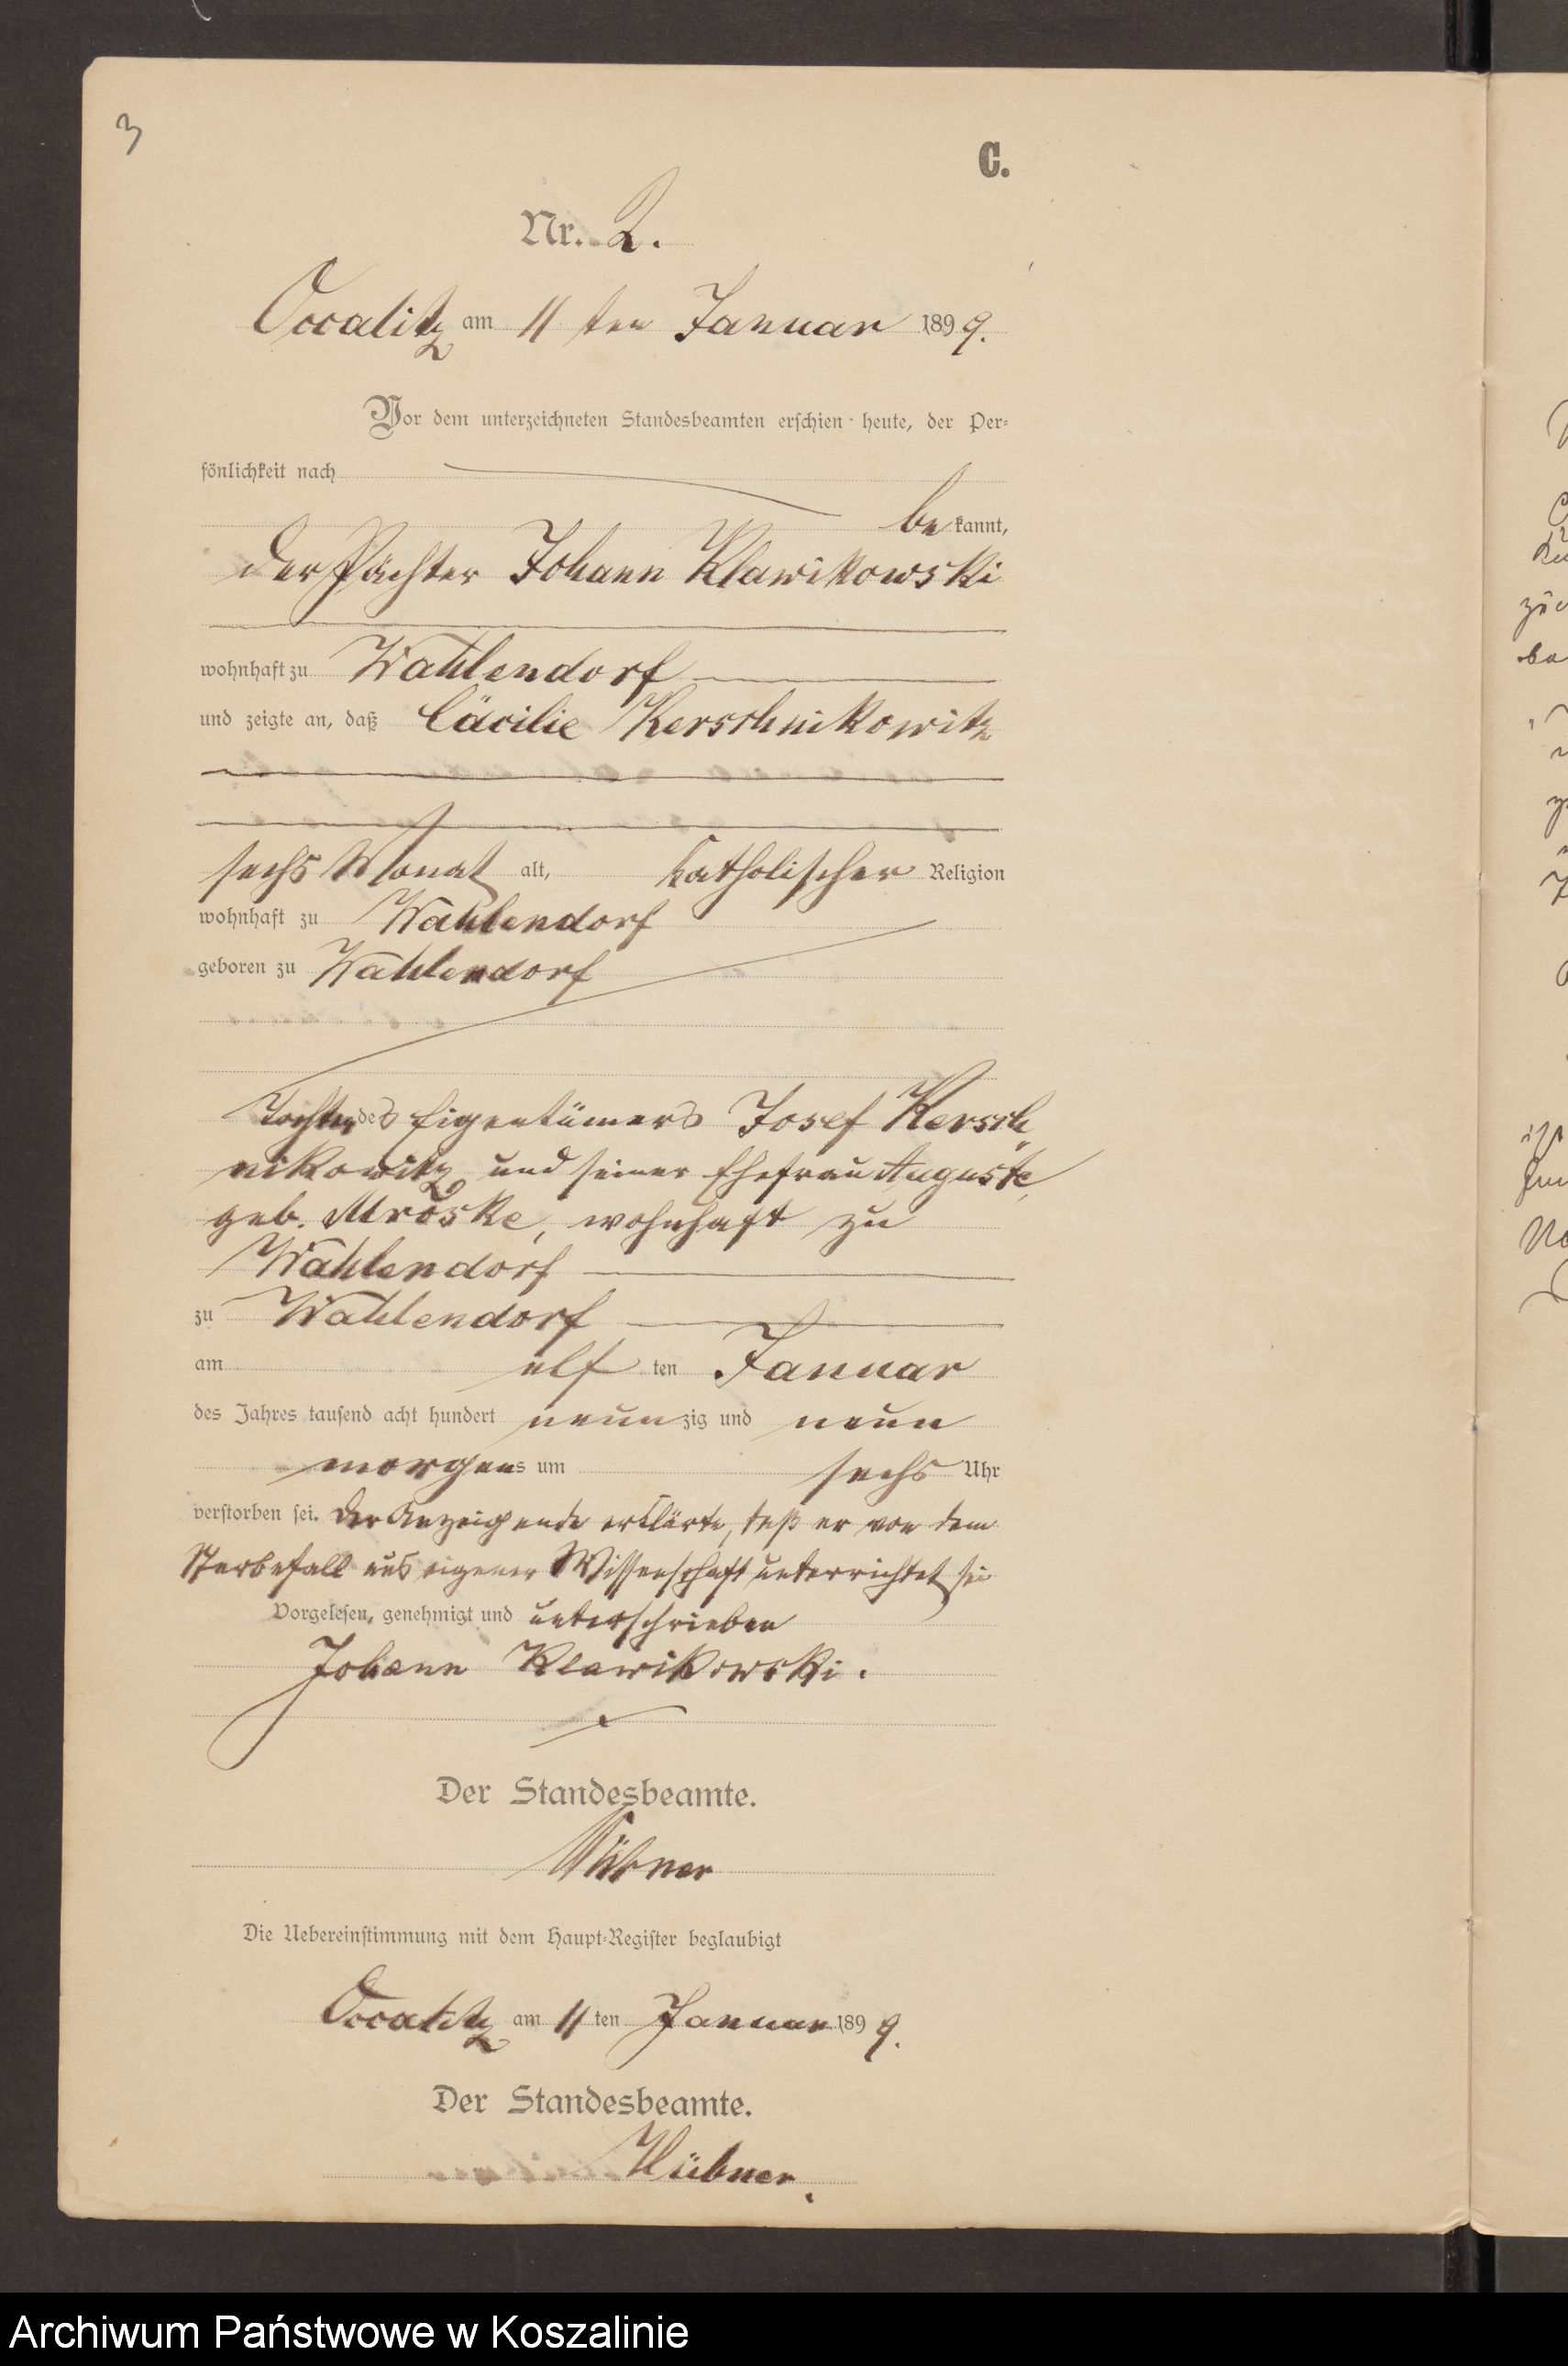 3
C.
Nr. 2.
Occalitz am 11 ten Januar 1899.
Vor dem unterzeichneten Standesbeamten erschien heute, der Per-
sönlichkeit nach
be kannt,
der Pächter Johann Klawikowski
wohnhaft zu Wahlendorf
und zeigte an, daß Cäcilie Kerschnikowitz
sechs Monat alt, katholischer Religion
wohnhaft zu Wahlendorf
geboren zu Wahlendorf
Tochter des Eigentümers Josef Kersch-
nikowitz und seiner Ehefrau Auguste,
geb. Mroske, wohnhaft zu
Wahlendorf
zu Wahlendorf
am elf ten Januar
des Jahres tausend acht hundert neunzig und neun
morgens um sechs Uhr
verstorben sei. Der Anzeigende erklärte, daß er von dem
Sterbefall aus eigener Wissenschaft unterrichtet sei
Vorgelesen, genehmigt und unterschrieben
Johann Klawikowski.
Der Standesbeamte.
Hübner
Die Uebereinstimmung mit dem Haupt-Register beglaubigt
Occalitz am 11 ten Januar 1899.
Der Standesbeamte.
Hübner.
Archiwum Państwowe w Koszalinie